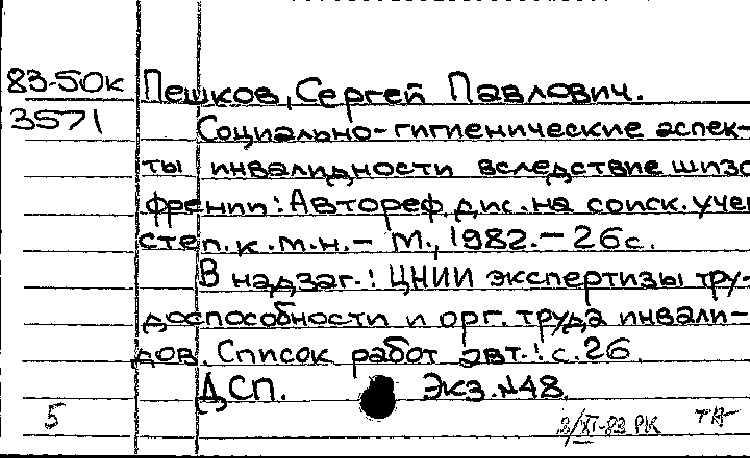 83-50к Пешков, Сергей Павлович.
3571 Социально-гигиенические аспек-
ты инвалидности вследствие шизо
френии: Автореф. дис. на соиск. учен
степ. к.м.н. - М., 1982. - 26 с.
В надзаг.: ЦНИИ экспертизы тру-
доспособности и орг. труда инвали-
дов. Список работ авт.: с. 26
ДСП. Экз. №48.
5 3/XI-83 РК